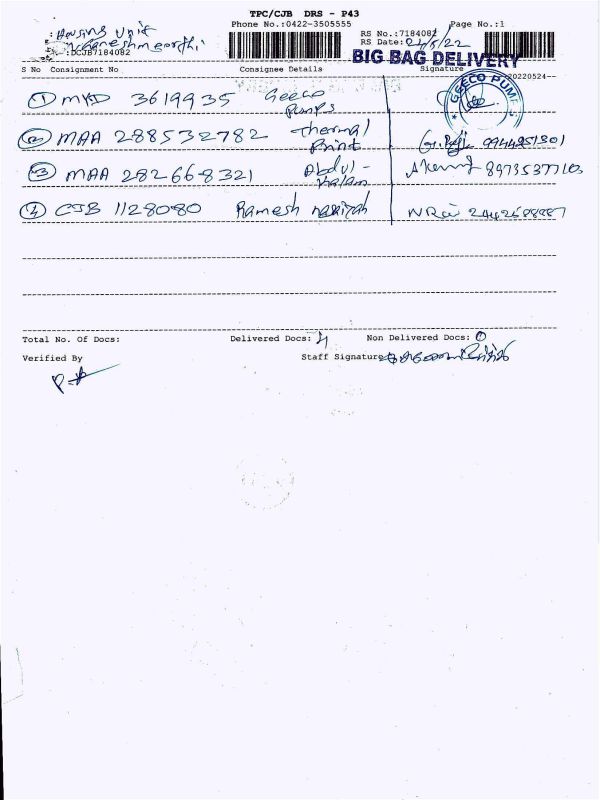 TPC/CJB DRS - P43
Phone No.:0422-3505555
Page No.:1
: Housing Unit
RS No.:7184082
RS Date: 24/5/22
:DCJB7184082
BIG BAG DELIVERY
S No Consignment No Consignee Details Signature 20220524
GEECO PUMPS
① MKD 3619935 Geeco Pumps
② MAA 288532782 Thermal Print 9944251301
③ MAA 282668321 Abdul-Kalam 8973537710
④ CJB 1128080 Ramesh
Total No. Of Docs: Delivered Docs: 4 Non Delivered Docs: 0
Verified By Staff Signature